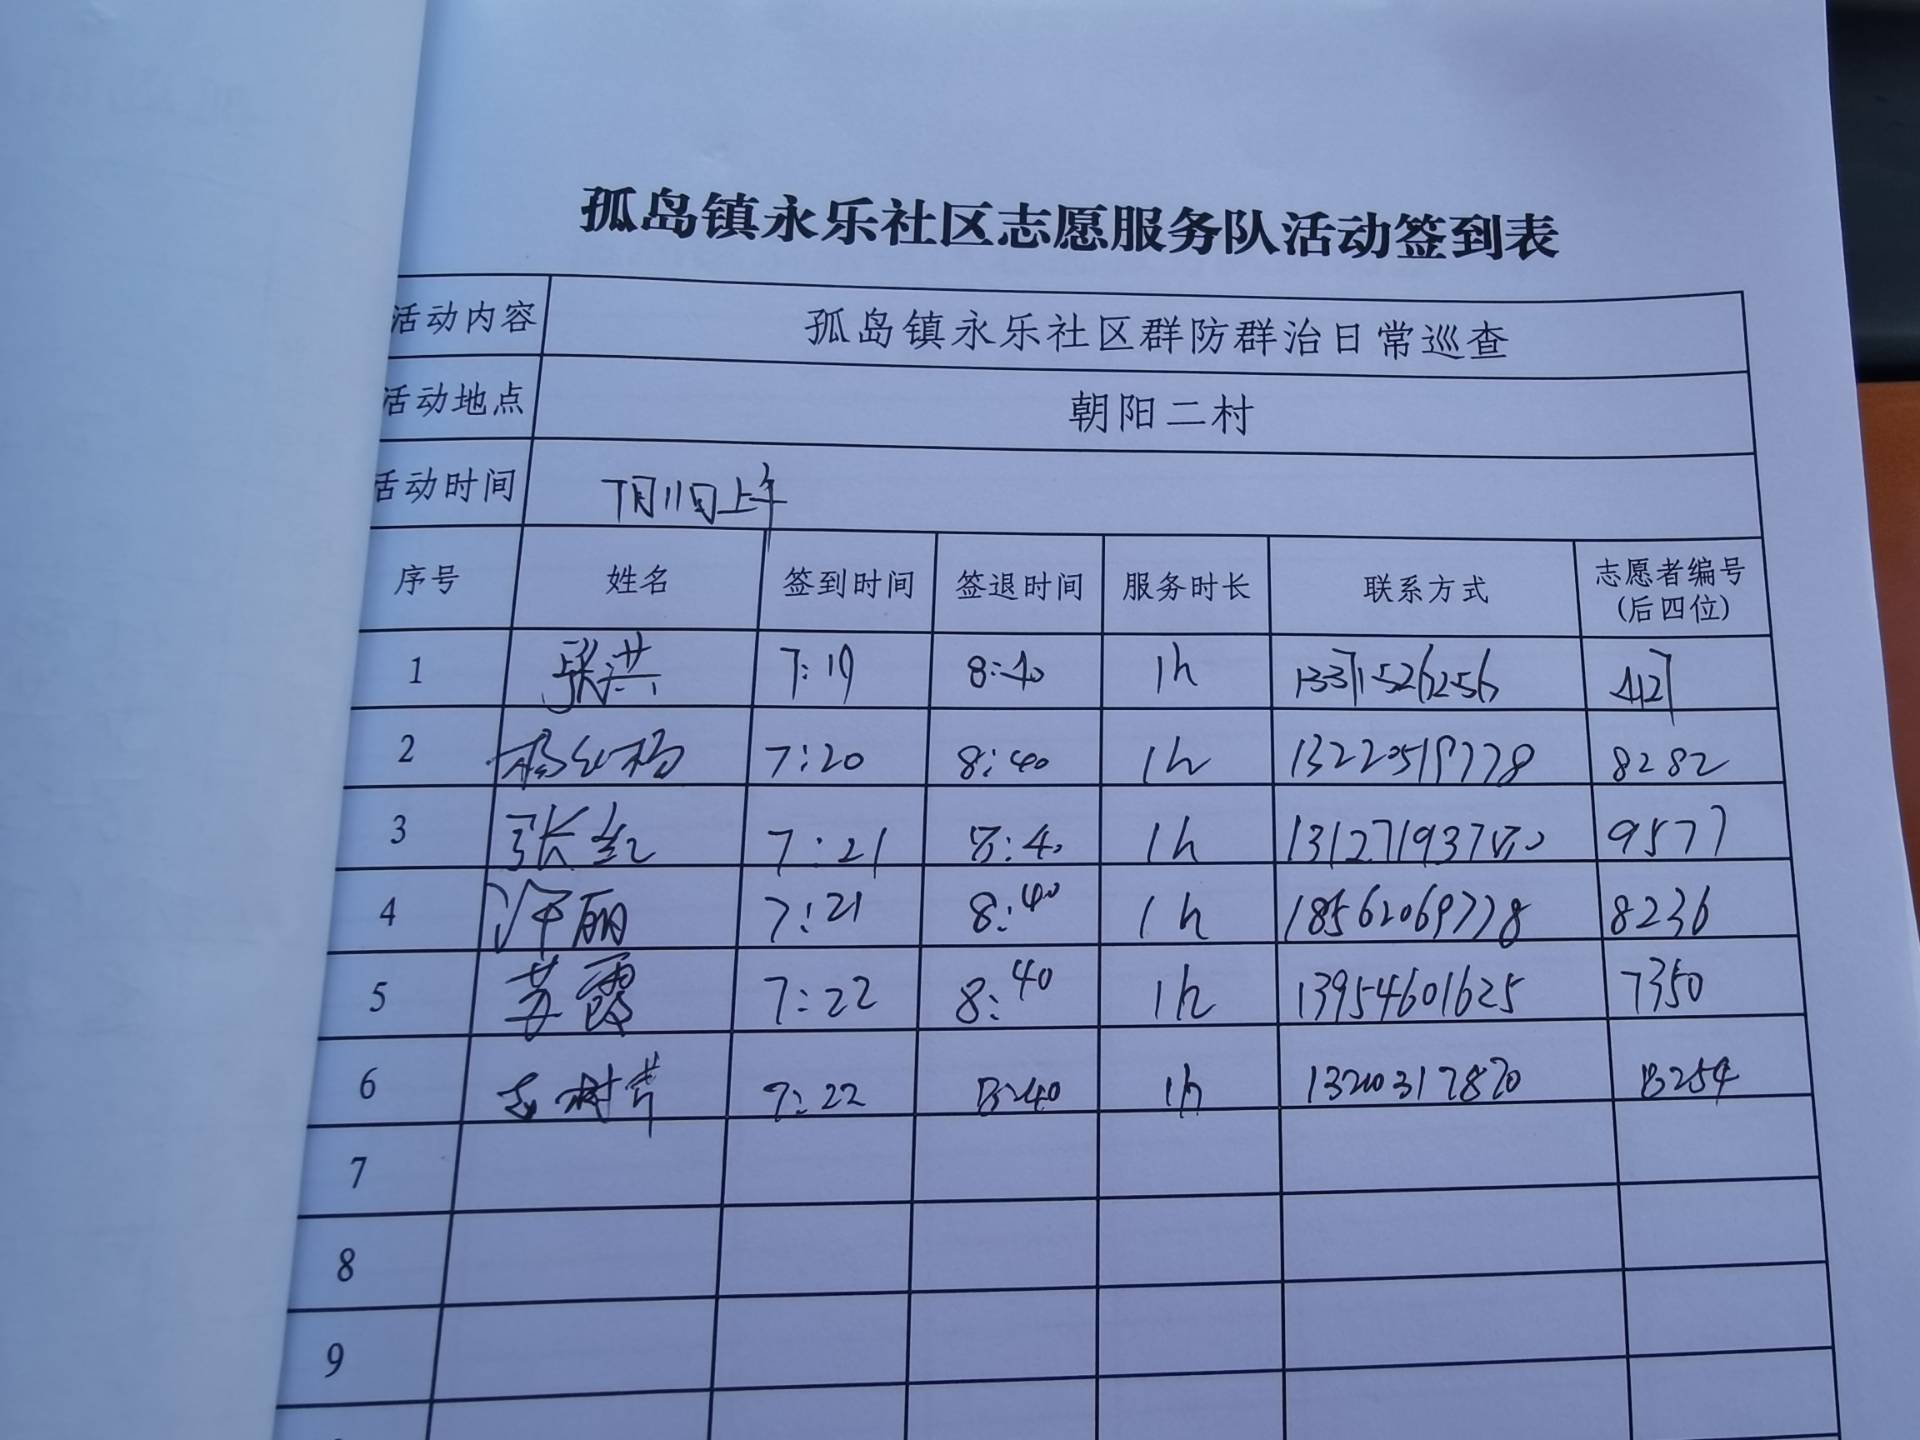 孤岛镇永乐社区志愿服务队活动签到表
活动内容 孤岛镇永乐社区群防群治日常巡查
活动地点 朝阳二村
活动时间 7月11日上午
序号 姓名 签到时间 签退时间 服务时长 联系方式 志愿者编号
(后四位)
1 张洪 7:19 8:40 1h 13371526256 4127
2 7:20 8:40 1h 13220519778 8282
3 张红 7:21 8:40 1h 9577
4 许丽 7:21 8:40 1h 18562069778 8236
5 苏霞 7:22 8:40 1h 13954601625 7350
6 7:22 8:40 1h 8254
7
8
9